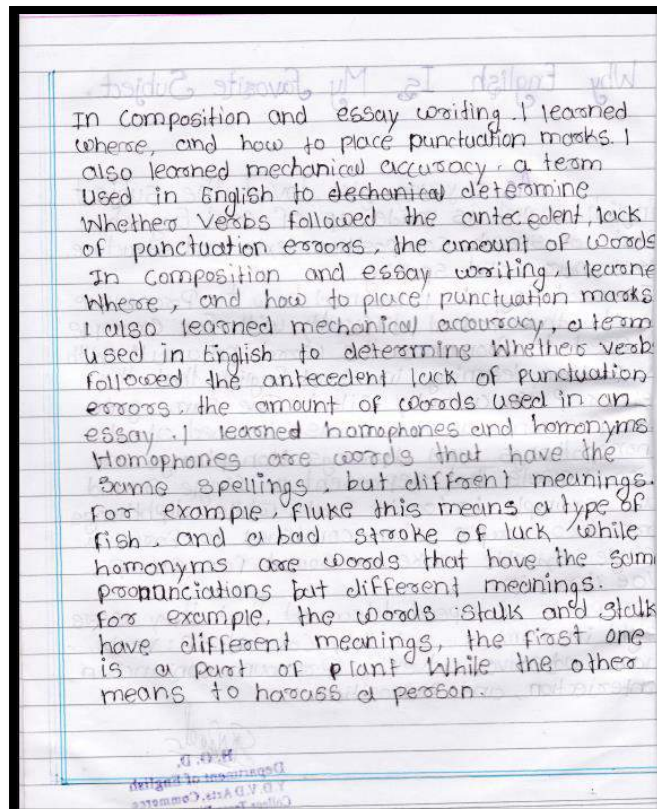 In composition and essay writing. I learned
where, and how to place punctuation marks. I
also learned mechanical accuracy. a term
used in English to dechanical determine
Whether Verbs followed the antecedent, lack
of punctuation errors, the amount of words
In composition and essay writing, I learne
Where, and how to place punctuation marks
I also learned mechanical accouracy, a term
used in English to determine Whether verb
followed the antecedent lack of punctuation
errors, the amount of words used in an
essay. I learned homophones and homonyms
Homophones are words that have the
Same spellings, but diffrent meanings.
For example, Fluke this means a type of
fish, and a bad stroke of luck while
homonyms are words that have the sam
pronunciations but different meanings.
for example, the words stalk and stalk
have different meanings, the first one
is a part of plant While the other
means to harass a person.
Why English Is My Favorite Subject.
H. O. D.
Department of English
Y.D.V.D.Arts, Commerce